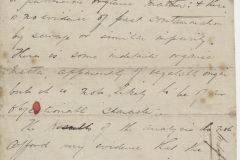 organic matter; & there
is no evidence of past contamination
by sewage or similar impurity.
There is some indefinite organic
matter, apparently of vegetable orig
but it is not likely to be of an
objectionable character.
The results of the analysis do not
afford any evidence that the